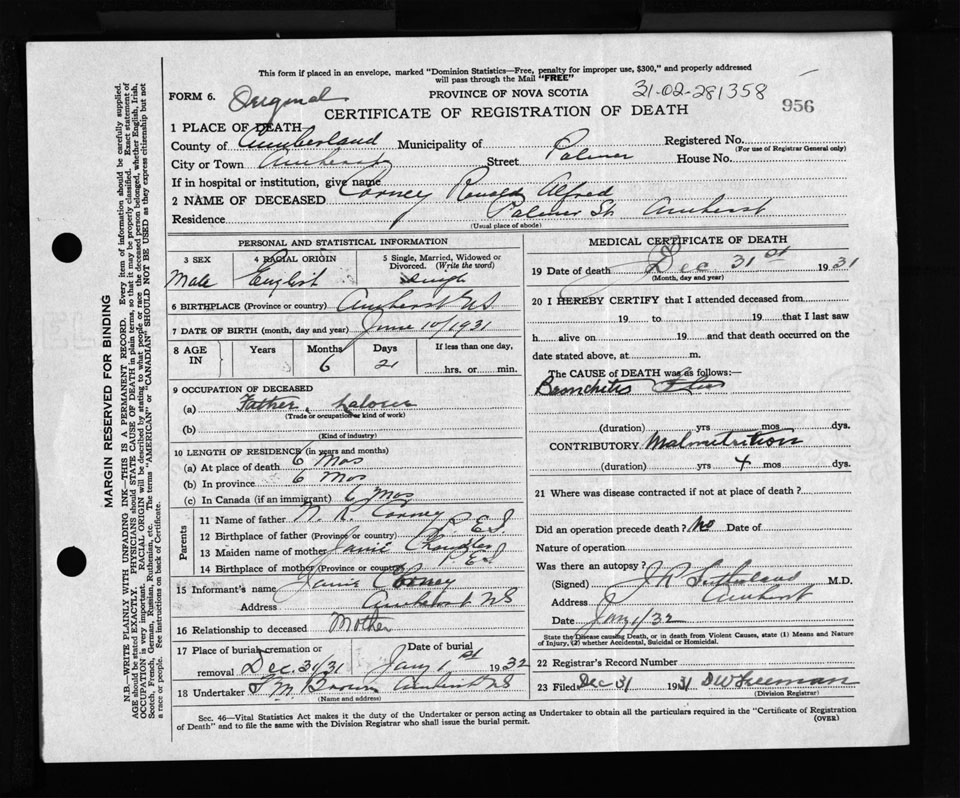 This form if placed in an envelope, marked "Dominion Statistics—Free, penalty for improper use, $300," and properly addressed
will pass through the Mail "FREE"
FORM 6. Original PROVINCE OF NOVA SCOTIA 31-02-281358
CERTIFICATE OF REGISTRATION OF DEATH 956
1 PLACE OF DEATH
County of Cumberland Municipality of Registered No.
(For use of Registrar General only)
City or Town Amherst Street Palmer House No.
If in hospital or institution, give name
2 NAME OF DECEASED Cooney Ronald Alfred
Residence Palmer St. Amherst
(Usual place of abode)
PERSONAL AND STATISTICAL INFORMATION
3 SEX 4 RACIAL ORIGIN 5 Single, Married, Widowed or Divorced. (Write the word)
Male English Single
6 BIRTHPLACE (Province or country) Amherst NS
7 DATE OF BIRTH (month, day and year) June 10/1931
8 AGE IN Years Months Days If less than one day,
6 21 hrs. or min.
9 OCCUPATION OF DECEASED
(a) Father, Labour
(Trade or occupation or kind of work)
(b)
(Kind of industry)
10 LENGTH OF RESIDENCE (in years and months)
(a) At place of death 6 Mos
(b) In province 6 Mos
(c) In Canada (if an immigrant) 6 Mos
Parents
11 Name of father Cooney
12 Birthplace of father (Province or country) P.E.I
13 Maiden name of mother Janie
14 Birthplace of mother (Province or country) P.E.I
15 Informant's name Janie Cooney
Address Amherst NS
16 Relationship to deceased Mother
17 Place of burial, cremation or removal Date of burial
Dec 31/31 Jany 1st 1932
18 Undertaker Brown Amherst NS
(Name and address)
MEDICAL CERTIFICATE OF DEATH
19 Date of death Dec 31st 1931
(Month, day and year)
20 I HEREBY CERTIFY that I attended deceased from
19 to 19 that I last saw
h alive on 19 and that death occurred on the
date stated above, at m.
The CAUSE of DEATH was as follows:—
Bronchitis
(duration) yrs mos dys.
CONTRIBUTORY Malnutrition
(duration) yrs 4 mos dys.
21 Where was disease contracted if not at place of death?
Did an operation precede death? No Date of
Nature of operation
Was there an autopsy?
(Signed) J.R. Sutherland M.D.
Address Amherst
Date Jany 1/32
State the Disease causing Death, or in death from Violent Causes, state (1) Means and Nature
of Injury, (2) whether Accidental, Suicidal or Homicidal.
22 Registrar's Record Number
23 Filed Dec 31 1931 DW Freeman
(Division Registrar)
Sec. 46—Vital Statistics Act makes it the duty of the Undertaker or person acting as Undertaker to obtain all the particulars required in the "Certificate of Registration
of Death" and to file the same with the Division Registrar who shall issue the burial permit.
(OVER)
MARGIN RESERVED FOR BINDING
N.B.—WRITE PLAINLY WITH UNFADING INK—THIS IS A PERMANENT RECORD. Every item of information should be carefully supplied.
AGE should be stated EXACTLY. PHYSICIANS should STATE CAUSE OF DEATH in plain terms, so that it may be properly classified. Exact statement of
OCCUPATION is very important. RACIAL ORIGIN will be described by stating to what people or race the deceased person belonged, whether English, Irish,
Scotch, French, German, Russian, Ruthenian, etc. The terms "AMERICAN" or "CANADIAN" SHOULD NOT BE USED as they express citizenship but not
a race or people. See instructions on back of Certificate.